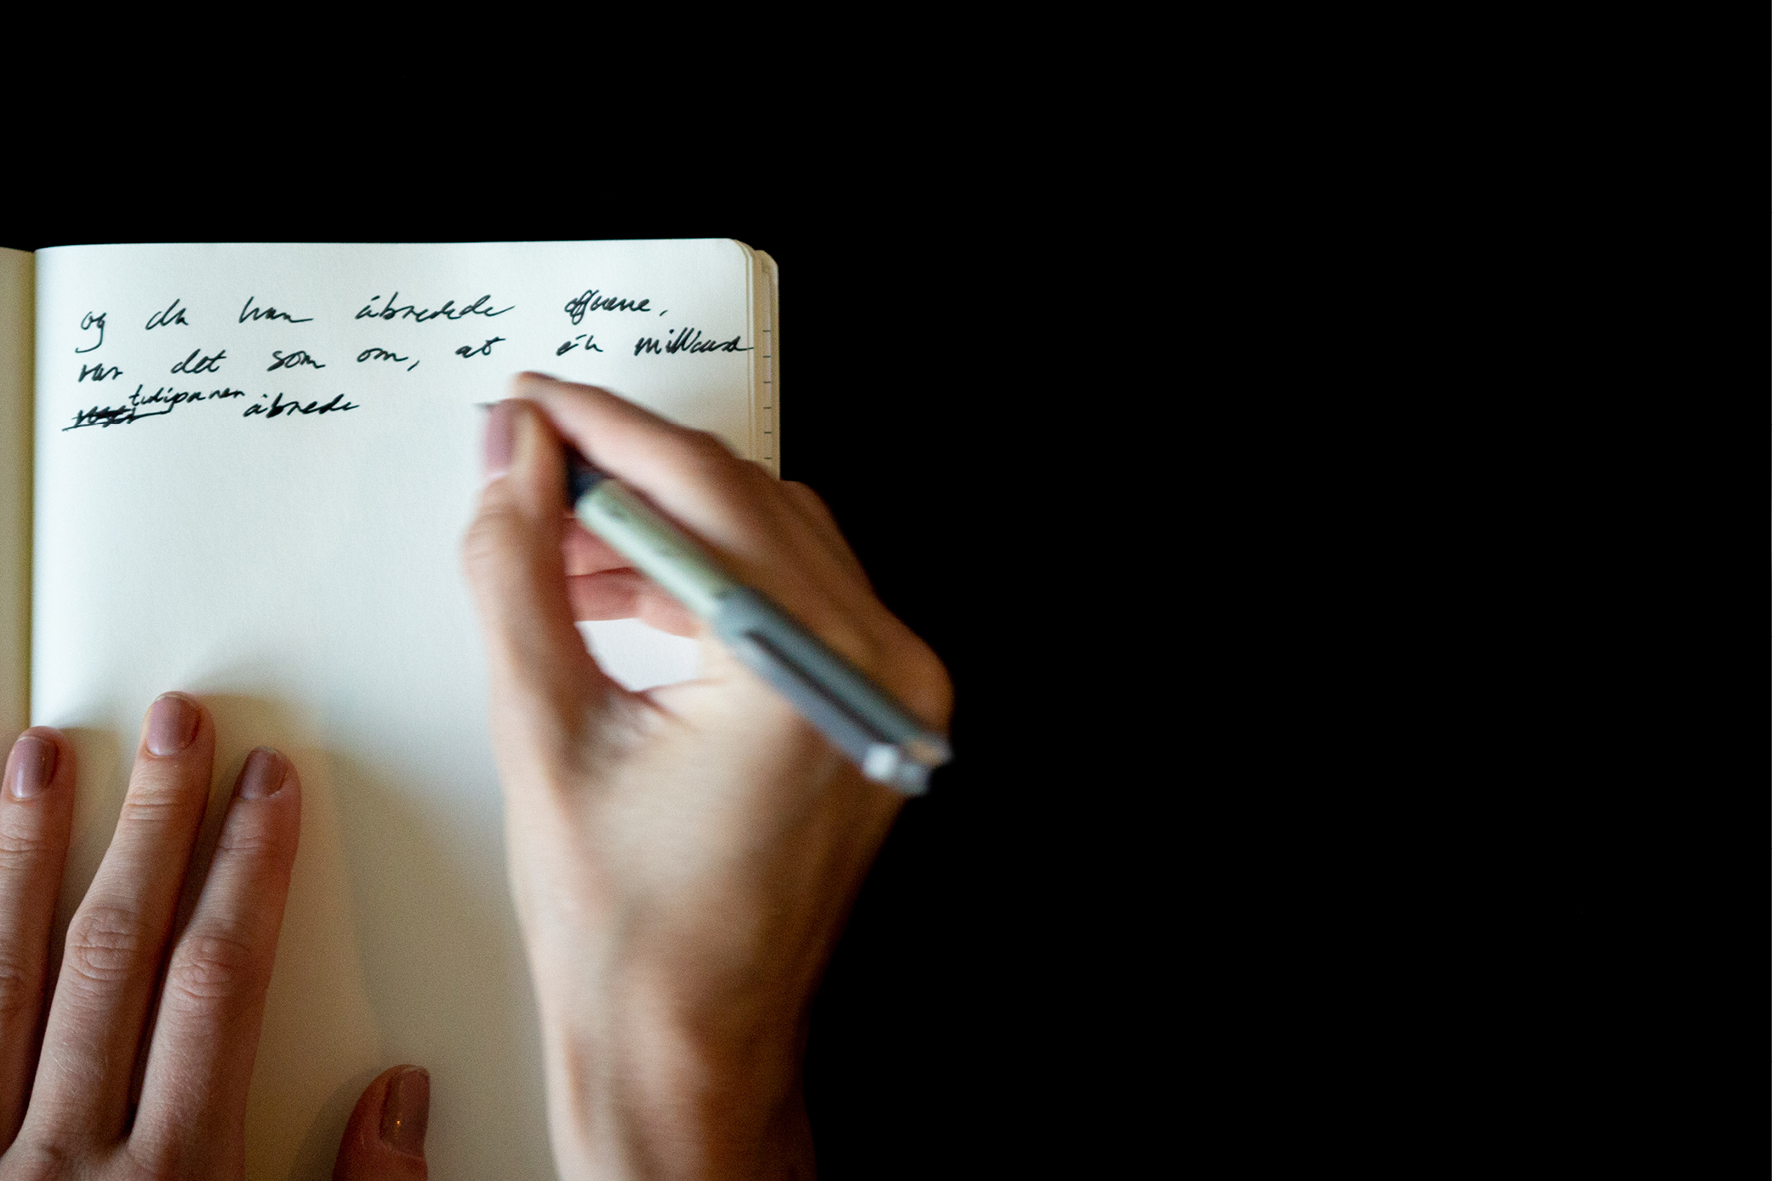 og da han åbnede øjnene,
var det som om, at én milliard
tulipaner åbnede